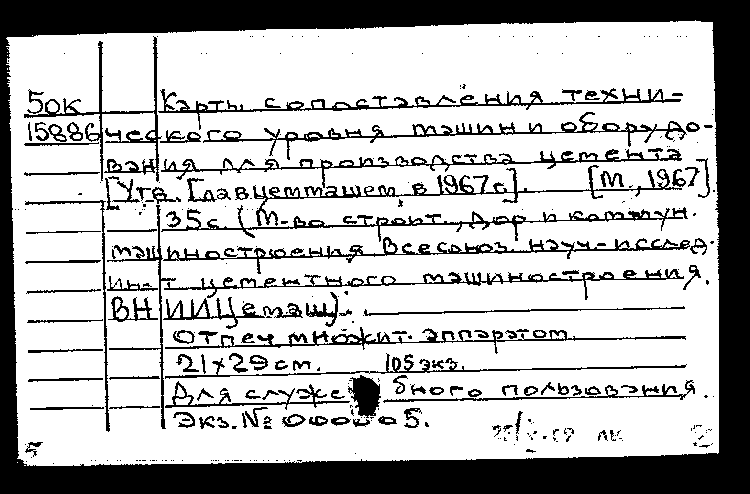 5ок Карты сопоставления техни-
15886 ческого уровня машин и оборудо-
вания для производства цемента
[Утв. Главцеммашем в 1967г]. [М., 1967].
35с. (М-во строит., дор и коммун.
машиностроения Всесоюз. науч-исслед.
ин-т цементного машиностроения.
ВНИИЦемаш).
Отпеч множит. аппаратом.
21×29см. 105 экз.
Для служебного пользования.
Экз. № 000005.
5